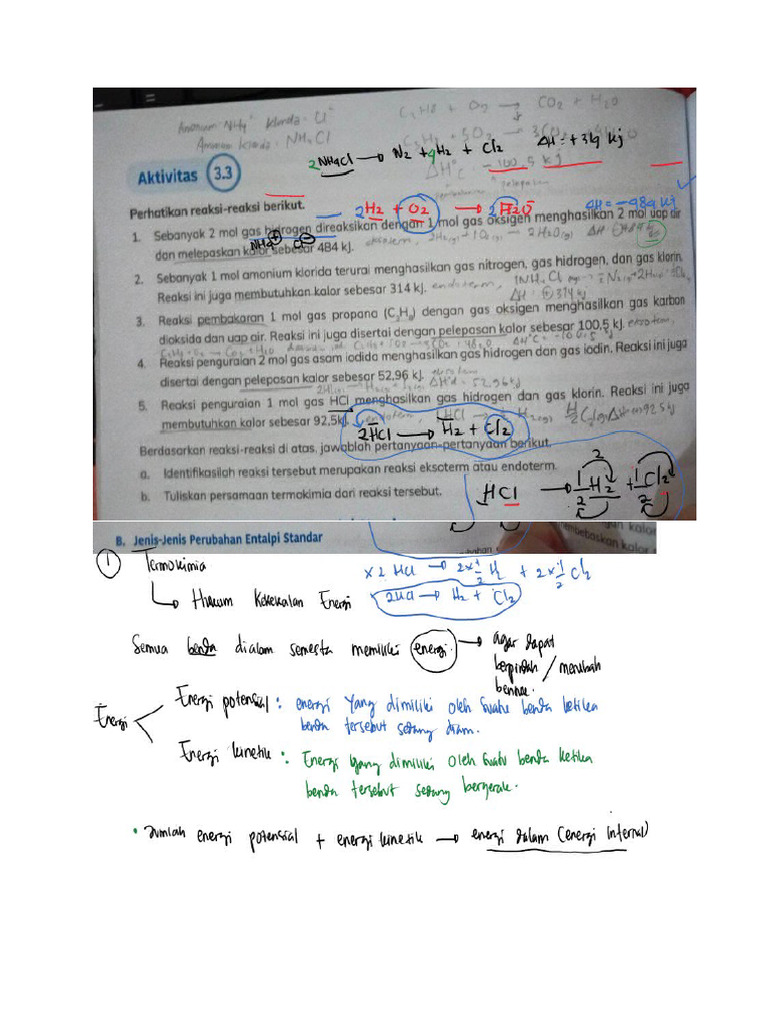 C3H8 + O2 → CO2 + H2O
Amonium: NH4+ Klorida: Cl-
Amonium klorida: NH4Cl
2NH4Cl → N2 + 4H2 + Cl2 ΔH = +314 kJ
ΔH°c - 100,5 kJ
Aktivitas 3.3
pelepasan
Perhatikan reaksi-reaksi berikut.
2H2 + O2 → 2H2O ΔH = -484 kJ
1. Sebanyak 2 mol gas hidrogen direaksikan dengan 1 mol gas oksigen menghasilkan 2 mol uap air
NH4+ Cl-
dan melepaskan kalor sebesar 484 kJ. eksoterm, 2H2(g) + 1O2(g) → 2H2O(g) ΔH
2. Sebanyak 1 mol amonium klorida terurai menghasilkan gas nitrogen, gas hidrogen, dan gas klorin.
Reaksi ini juga membutuhkan kalor sebesar 314 kJ. endoterm,
ΔH: + 314 kJ
3. Reaksi pembakaran 1 mol gas propana (C3H8) dengan gas oksigen menghasilkan gas karbon
dioksida dan uap air. Reaksi ini juga disertai dengan pelepasan kalor sebesar 100,5 kJ. eksoterm,
C3H8 + O2 → CO2 + H2O
4. Reaksi penguraian 2 mol gas asam iodida menghasilkan gas hidrogen dan gas iodin. Reaksi ini juga
disertai dengan pelepasan kalor sebesar 52,96 kJ. eksoterm
5. Reaksi penguraian 1 mol gas HCl menghasilkan gas hidrogen dan gas klorin. Reaksi ini juga
membutuhkan kalor sebesar 92,5kJ. endoterm,
2HCl → H2 + Cl2
Berdasarkan reaksi-reaksi di atas, jawablah pertanyaan-pertanyaan berikut.
a. Identifikasilah reaksi tersebut merupakan reaksi eksoterm atau endoterm.
2
HCl → 1/2 H2 + 1/2 Cl2
b. Tuliskan persamaan termokimia dari reaksi tersebut.
B. Jenis-Jenis Perubahan Entalpi Standar
① Termokimia
×2 HCl → 2×1/2 H2 + 2×1/2 Cl2
↳ Hukum Kekekalan Energi
2HCl → H2 + Cl2
Semua benda dialam semesta memiliki energi. → agar dapat
berpindah / merubah
bentuk.
Energi
Energi potensial : energi yang dimiliki oleh suatu benda ketika
benda tersebut sedang diam.
Energi kinetik : Energi yang dimiliki oleh suatu benda ketika
benda tersebut sedang bergerak.
• Jumlah energi potensial + energi kinetik → energi dalam (energi internal)